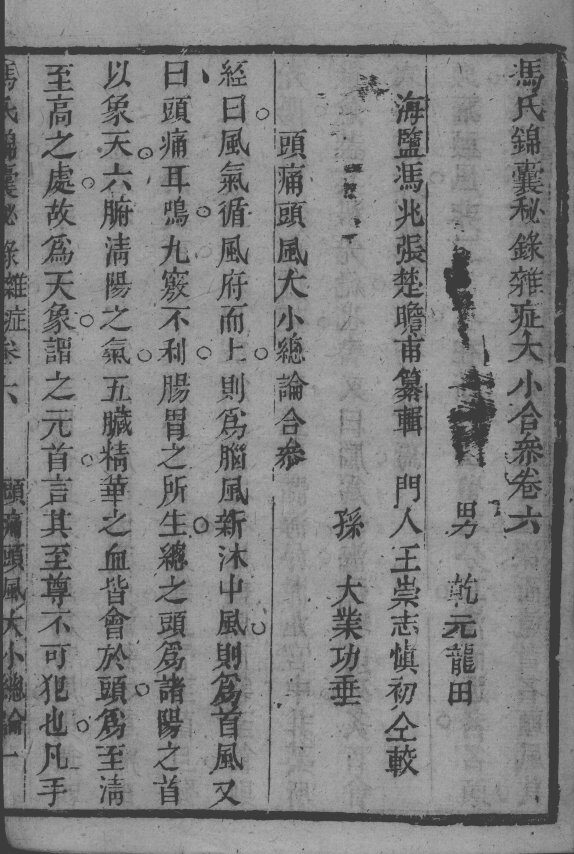 馮氏錦囊秘錄雜症大小合參卷六
男 乾元龍田
海鹽馮兆張楚瞻甫纂輯 門人王崇志慎初仝較
孫 大業功垂
頭痛頭風大小總論合參
經曰風氣循風府而上則爲腦風新沐中風則爲首風又
曰頭痛耳鳴九竅不利腸胃之所生總之頭爲諸陽之首
以象天六腑清陽之氣五臟精華之血皆會於頭爲至清
至高之處故爲天象謂之元首言其至尊不可犯也凡手
馮氏錦囊秘錄雜症卷六 頭痛頭風大小總論 一